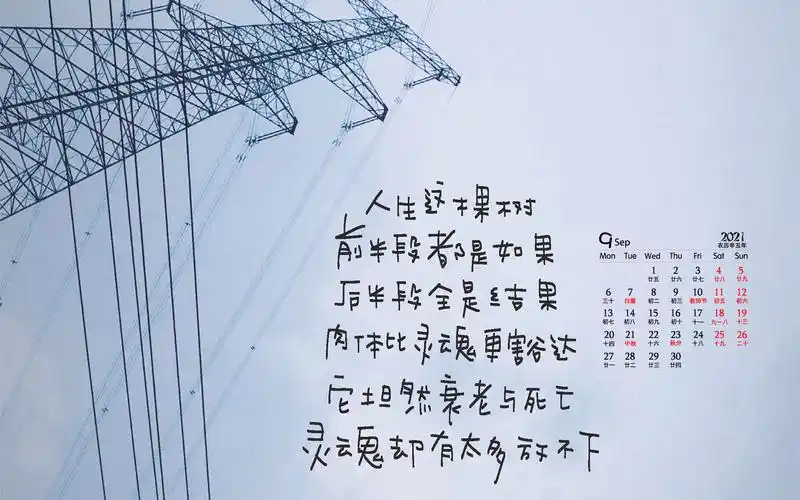 人生这棵树
前半段都是如果
后半段全是结果
肉体比灵魂更豁达
它坦然衰老与死亡
灵魂却有太多放不下
9 Sep 2021
农历辛丑年
Mon Tue Wed Thu Fri Sat Sun
1 2 3 4 5
廿五 廿六 廿七 廿八 廿九
6 7 8 9 10 11 12
三十 白露 初二 初三 教师节 初五 初六
13 14 15 16 17 18 19
初七 初八 初九 初十 十一 九一八 十三
20 21 22 23 24 25 26
十四 中秋 十六 秋分 十八 十九 二十
27 28 29 30
廿一 廿二 廿三 廿四